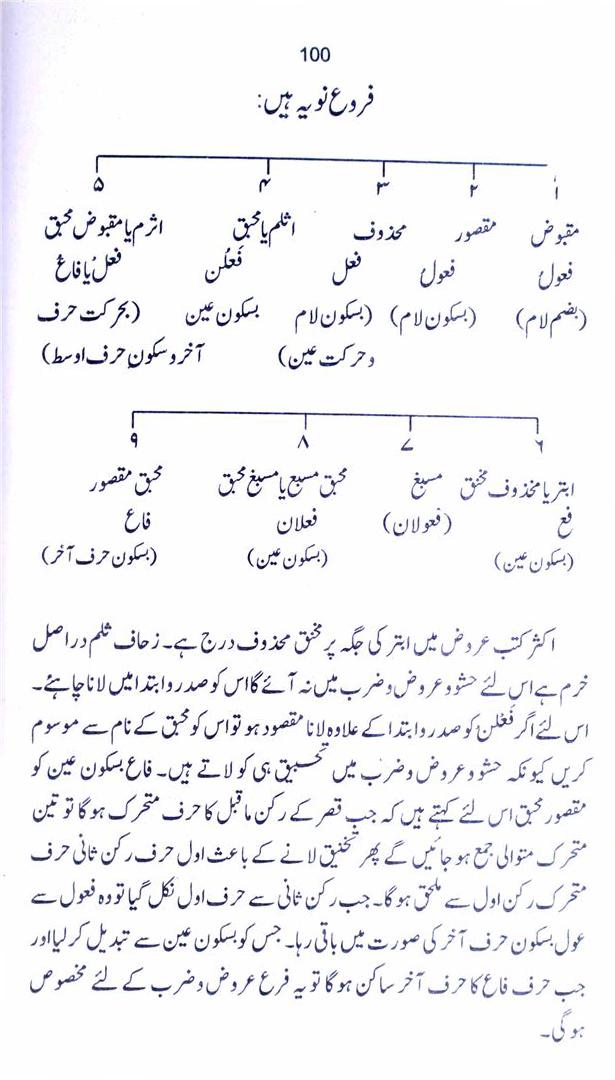 100
فروع نو یہ ہیں:
۱ ۲ ۳ ۴ ۵
مقبوض مقصور محذوف اثلم یا محبق اثرم یا مقبوض محبق
فعولُ فعولْ فعل فَعْلُن فعلُ یا فاعُ
(بضم لام) (بسکون لام) (بسکون لام بسکون عین (بحرکت حرف
وحرکت عین) آخر و سکونِ حرف اوسط)
۶ ۷ ۸ ۹
ابتر یا محذوف مخنق مسبغ محبق مسبغ یا مسبغ محبق محبق مقصور
فع (فعولان) فعلان فاع
(بسکون عین) (بسکون عین) (بسکون حرف آخر)
اکثر کتب عروض میں ابتر کی جگہ پر مخنق محذوف درج ہے۔ زحاف ثلم دراصل
خرم ہے اس لئے حشو و عروض و ضرب میں نہ آئے گا اس کو صدر و ابتدا میں لانا چاہئے۔
اس لئے اگر فَعْلن کو صدر و ابتدا کے علاوہ لانا مقصود ہو تو اس کو محبق کے نام سے موسوم
کریں کیونکہ حشو و عروض و ضرب میں تحسبیق ہی کو لاتے ہیں۔ فاع بسکون عین کو
مقصور محبق اس لئے کہتے ہیں کہ جب قصر کے رکن ماقبل کا حرف متحرک ہوگا تو تین
متحرک متوالی جمع ہو جائیں گے پھر تخنیق لانے کے باعث اول حرف رکن ثانی حرف
متحرک رکن اول سے ملحق ہوگا۔ جب رکن ثانی سے حرف اول نکل گیا تو وہ فعول سے
عول بسکون حرف آخر کی صورت میں باقی رہا۔ جس کو بسکون عین سے تبدیل کر لیا اور
جب حرف فاع کا حرف آخر ساکن ہوگا تو یہ فرع عروض و ضرب کے لئے مخصوص
ہوگی۔